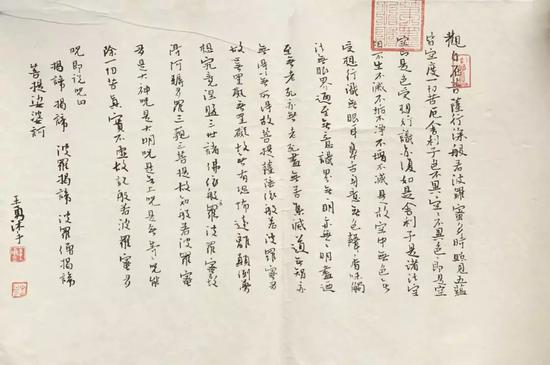 觀自在菩薩行深般若波羅蜜多時照見五蘊
皆空度一切苦厄舍利子色不異空空不異色色即是空
空即是色受想行識亦復如是舍利子是諸法空
相不生不滅不垢不淨不增不減是故空中無色無
受想行識無眼耳鼻舌身意無色聲香味觸
法無眼界乃至無意識界無無明亦無無明盡乃
至無老死亦無老死盡無苦集滅道無智亦
無得以無所得故菩提薩埵依般若波羅蜜多
故心無罣礙無罣礙故無有恐怖遠離顛倒夢
想究竟涅盤三世諸佛依般若波羅蜜多故
得阿耨多羅三藐三菩提故知般若波羅蜜
多是大神咒是大明咒是無上咒是無等等咒能
除一切苦真實不虛故說般若波羅蜜多
咒即說咒曰
揭諦揭諦 波羅揭諦 波羅僧揭諦
菩提娑婆訶